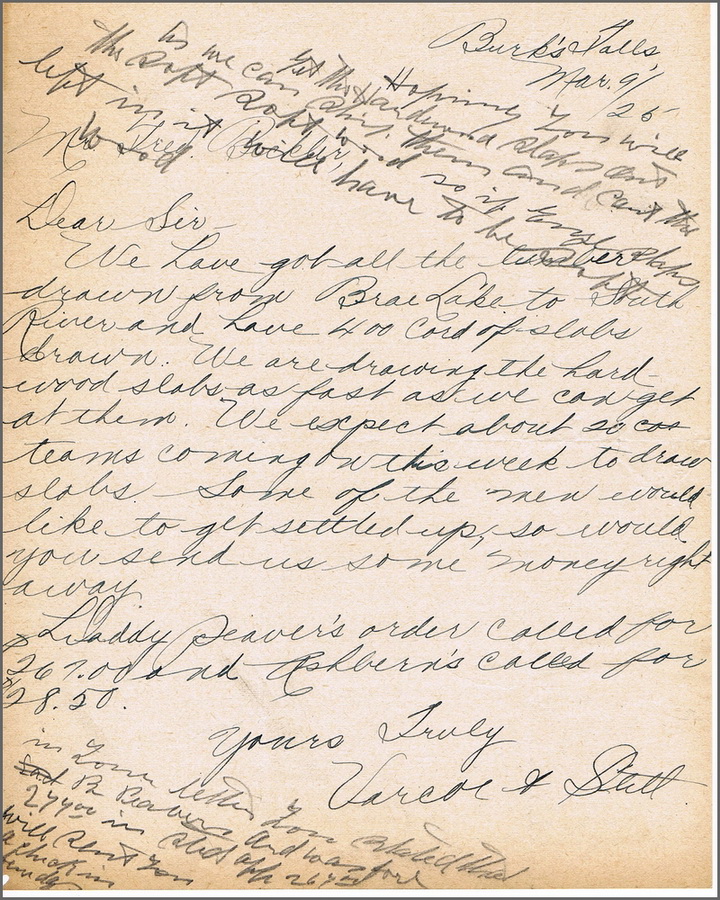 Burk's Falls
Mar. 9/
/25
Hoping you will
get the Hardwood slabs out
as we can ship them and can't the
the soft soft wood so if any slabs
left in it will have to be
Mr Fred
Dear Sir
We have got all the lumber
drawn from Brae Lake to South
River and have 400 Cord of slabs
drawn. We are drawing the hard-
wood slabs as fast as we can get
at them. We expect about 20 cos
teams coming on this week to draw
slabs. Some of the men would
like to get settled up, so would
you send us some money right
away.
Daddy Seaver's order called for
$267.00 and Ashbern's called for
$28.50.
Yours Truly
Varcoe & Stitt
in your letter you stated that
and was for
274.00 in
will send you
a check in